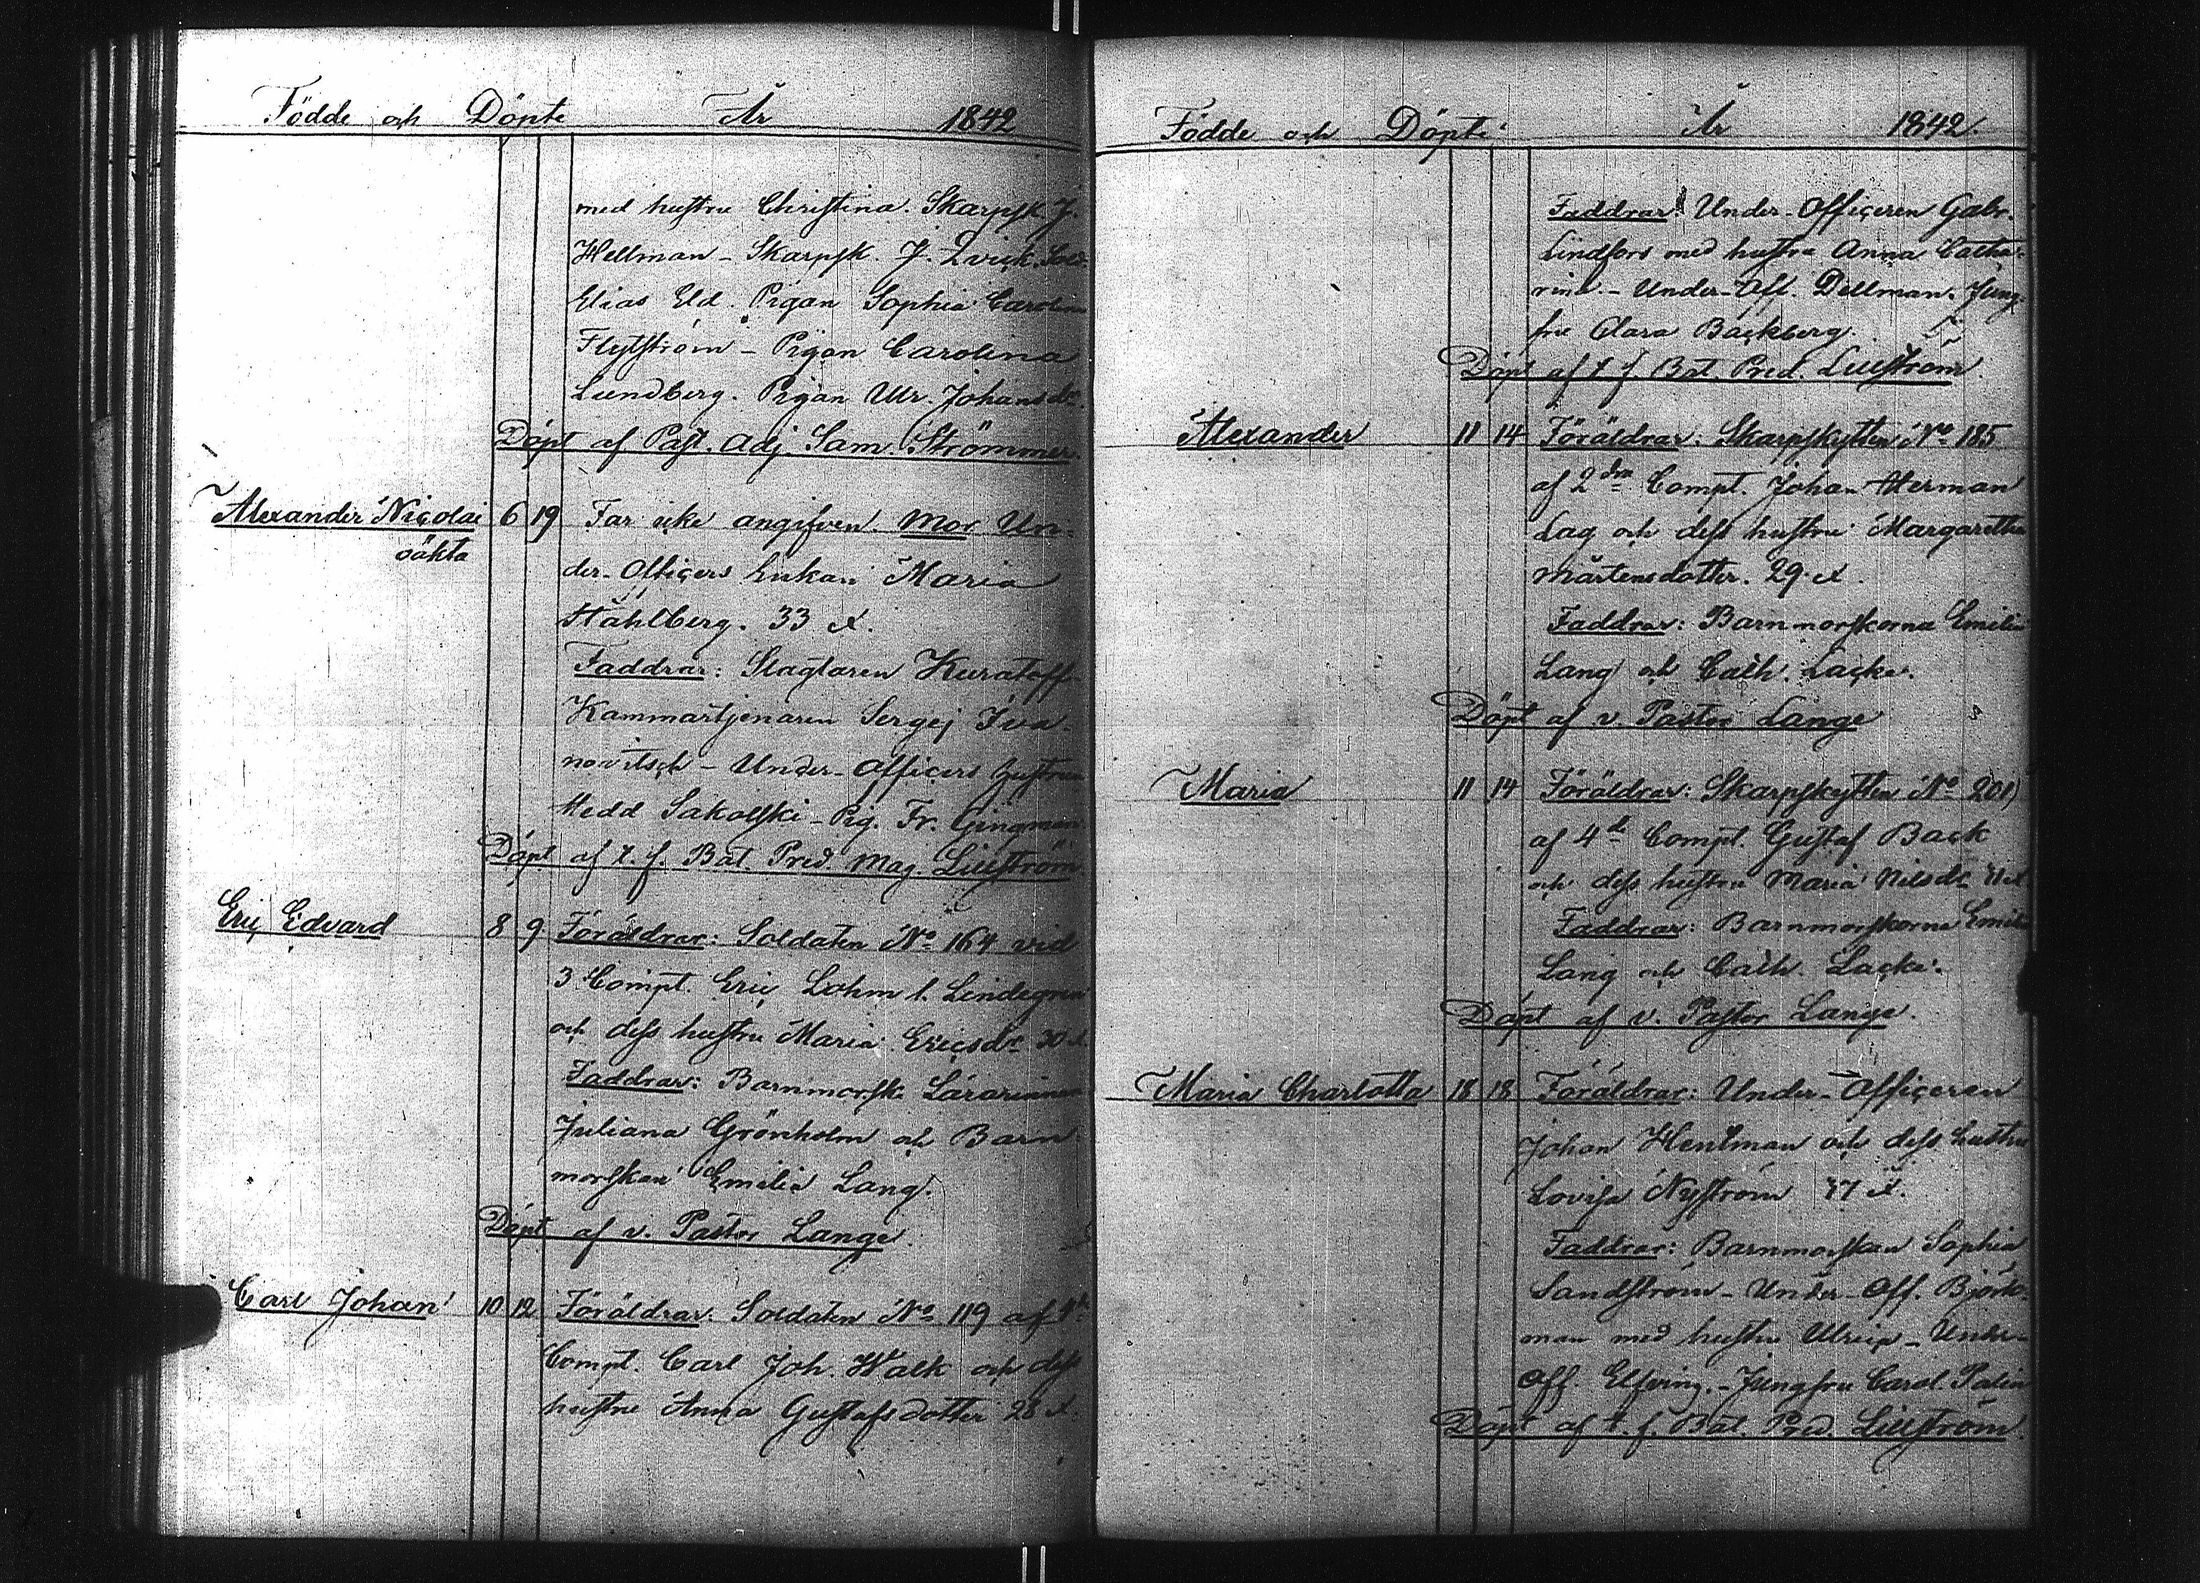 Födde och Döpte År 1842
med hustru Christina. Skarpsk. J.
Hellman - Skarpsk. J. Qvick. Sold.
Elias Eld. Pigan Sophia Carolina
Flytström - Pigan Carolina
Lundberg. Pigan Ulr. Johansdr.
Döpt af Past. Adj. Sam. Strömmer.
Alexander Nicolai 6 19 Far icke angifven. Mor Un-
oäkta
der-Officers Enkan Maria
Ståhlberg. 33 år.
Faddrar: Slagtaren Kuratoff
Kammartjenaren Sergej Iva-
novitsch - Under-Officers hustrun
Hedd Sakolski - Pig. Fr. Gingman.
Döpt af t. f. Bat. Pred. Mag. Liljström
Eric Edvard 8 9 Föräldrar: Soldaten No 164 vid
3. Compt. Eric Lohm l. Lindegren
och dess hustru Maria Ericsdr 30 år
Faddrar: Barnmorsk. Lärarinnan
Juliana Grönholm och Barn-
morskan Emilia Lang.
Döpt af v. Pastor Lange.
Carl Johan 10 12 Föräldrar: Soldaten No 119 af
Compt. Carl Joh. Walk och dess
hustru Anna Gustafsdotter 28 år.
Födde och Döpte År 1842.
Faddrar: Under-Officeren Gabr.
Lindfors med hustru Anna Catha-
rina. - Under-Off. Dellman. Jung-
fru Clara Bäckberg.
Döpt af t. f. Bat. Pred. Liljström.
Alexander 11 14 Föräldrar: Skarpskytten No 185
af 2dra Compt. Johan Herman
Lag och dess hustru Margaretha
Mårtensdotter. 29 år.
Faddrar: Barnmorskorna Emilia
Lang och Cath. Lacke.
Döpt af v. Pastor Lange
Maria 11 14 Föräldrar: Skarpskytten No 201
af 4de Compt. Gustaf Back
och dess hustru Maria Nilsdr
Faddrar: Barnmorskorna Emilia
Lang och Cath. Lacke.
Döpt af v. Pastor Lange.
Maria Charlotta 18 18 Föräldrar: Under-Officeren
Johan Hentman och dess hustru
Lovisa Nyström 37 år.
Faddrar: Barnmorskan Sophia
Sandström - Under-Off. Björk-
man med hustru Ulrica - Under-
Off. Elfving. - Jungfru Carol. Palin
Döpt af t. f. Bat. Pred. Liljström.